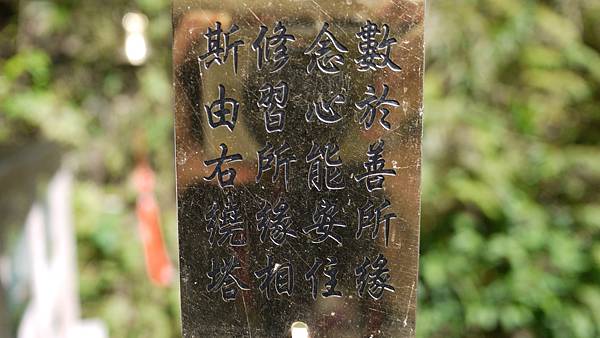 數於善所緣
念心能安住
修習所緣相
斯由右繞塔